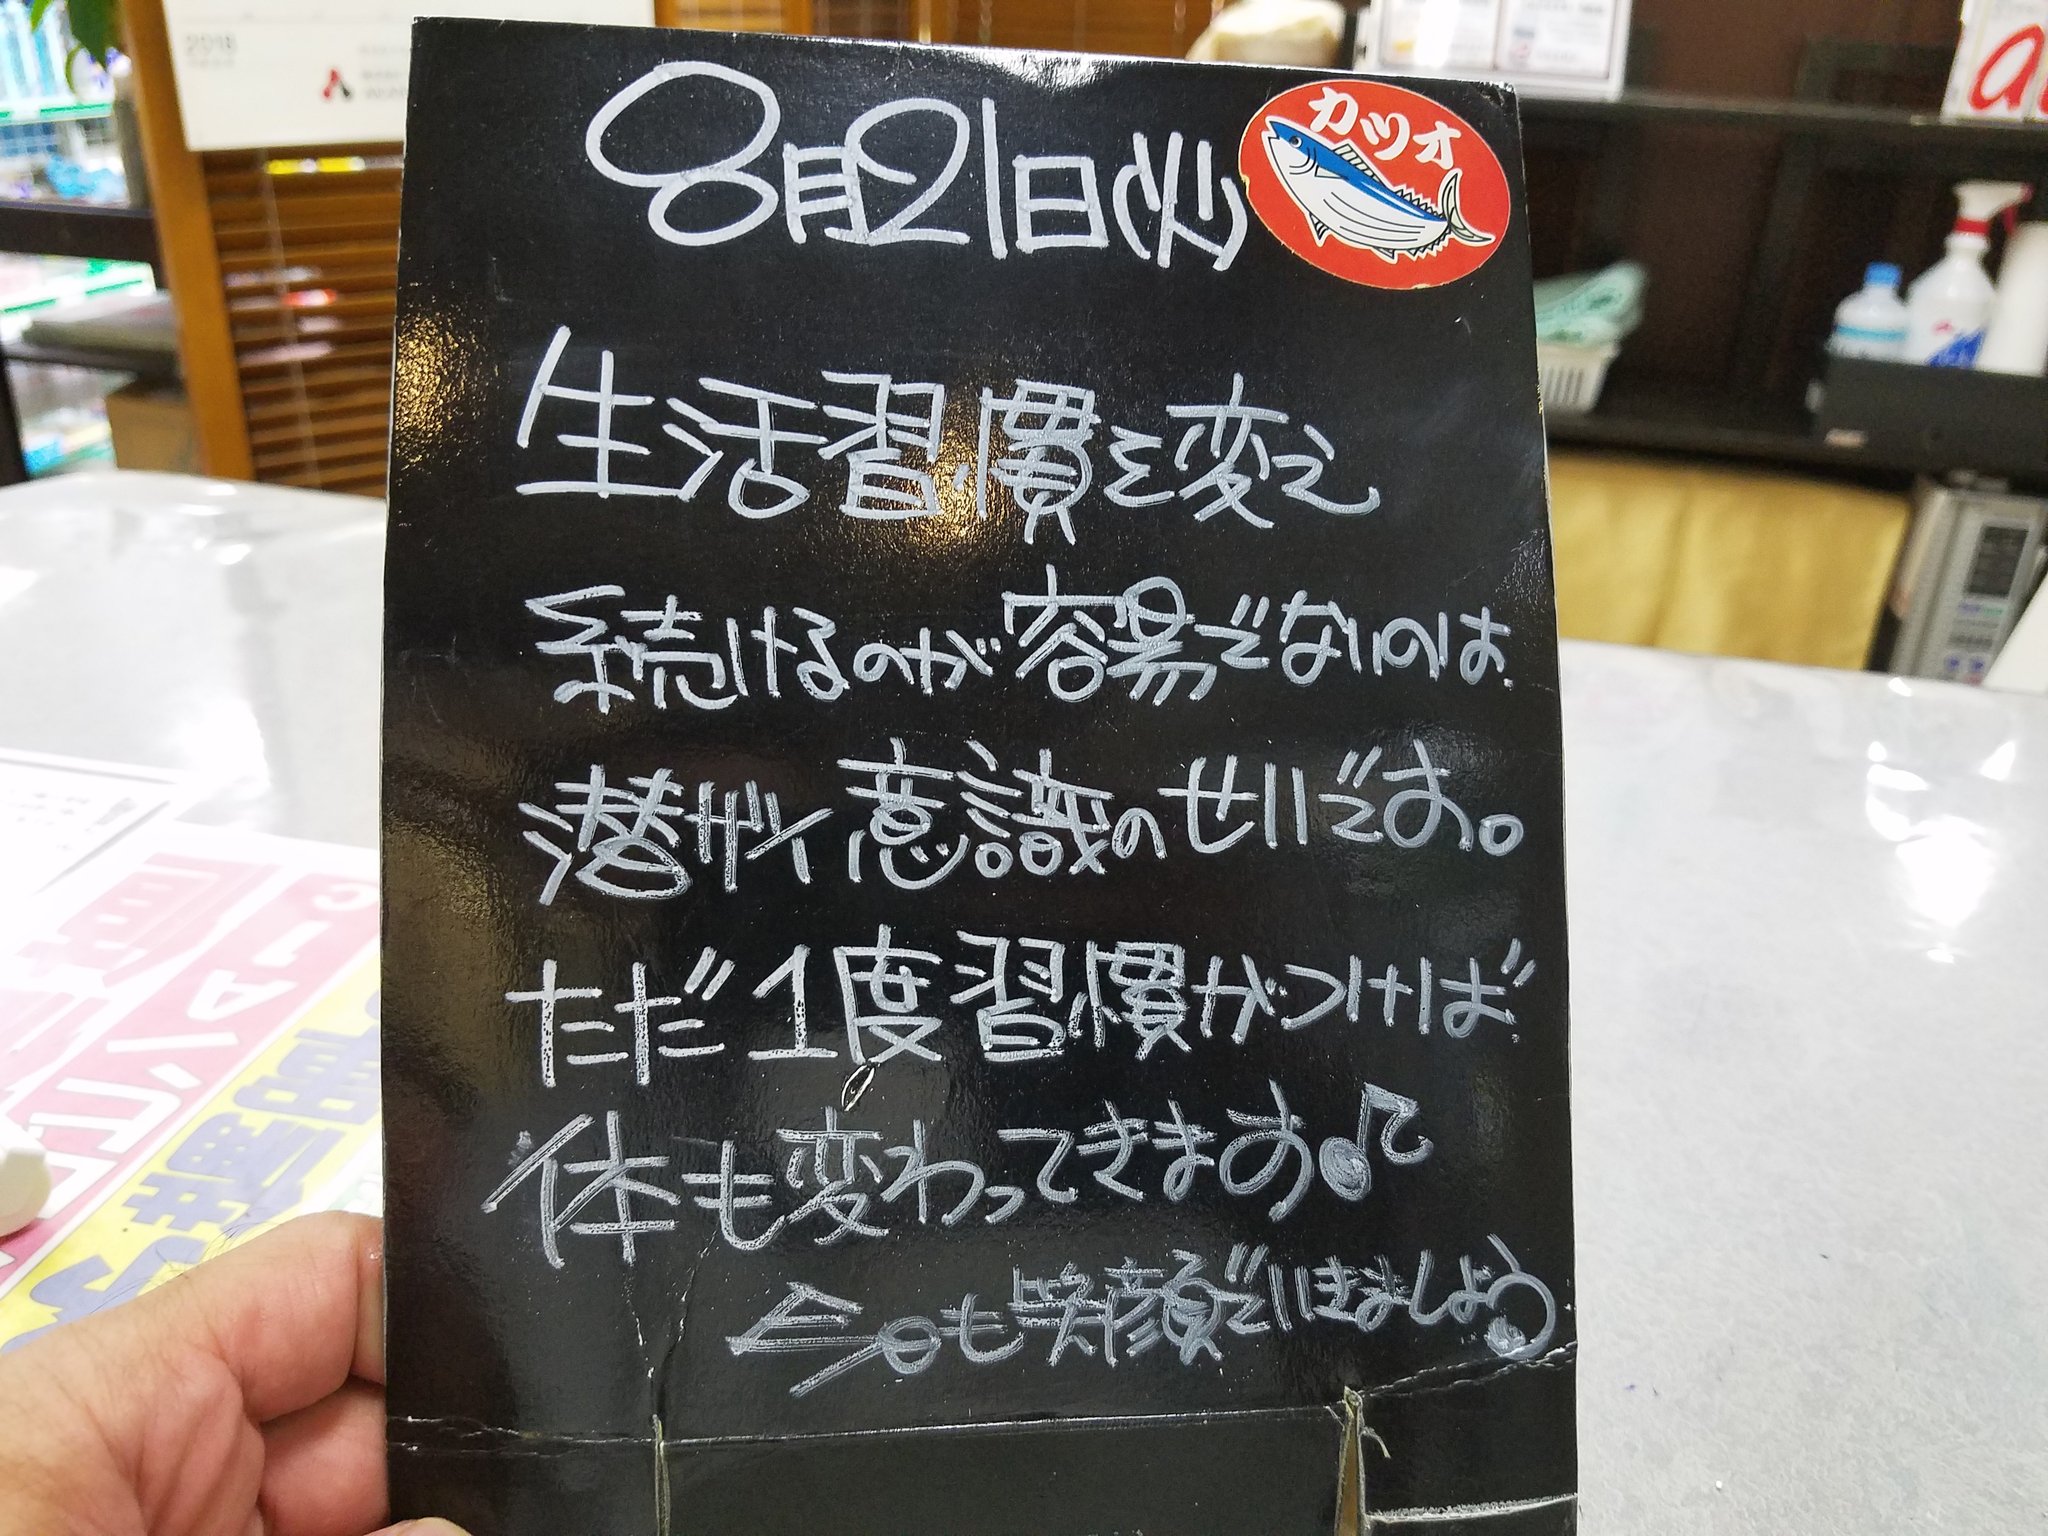 2018
8月21日(火)
カツオ
生活習慣を変え
続けるのが容易でないのは
潜ザイ意識のせいです。
ただ1度習慣がつけば
体も変わってきます♪
今日も笑顔でいきましょう